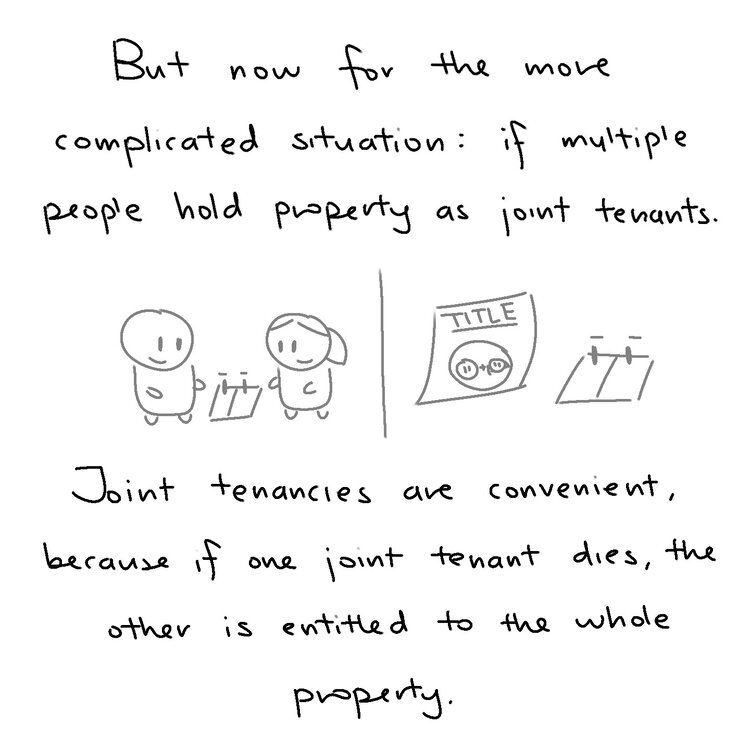 But now for the more
complicated situation: if multiple
people hold property as joint tenants.
TITLE
Joint tenancies are convenient,
because if one joint tenant dies, the
other is entitled to the whole
property.